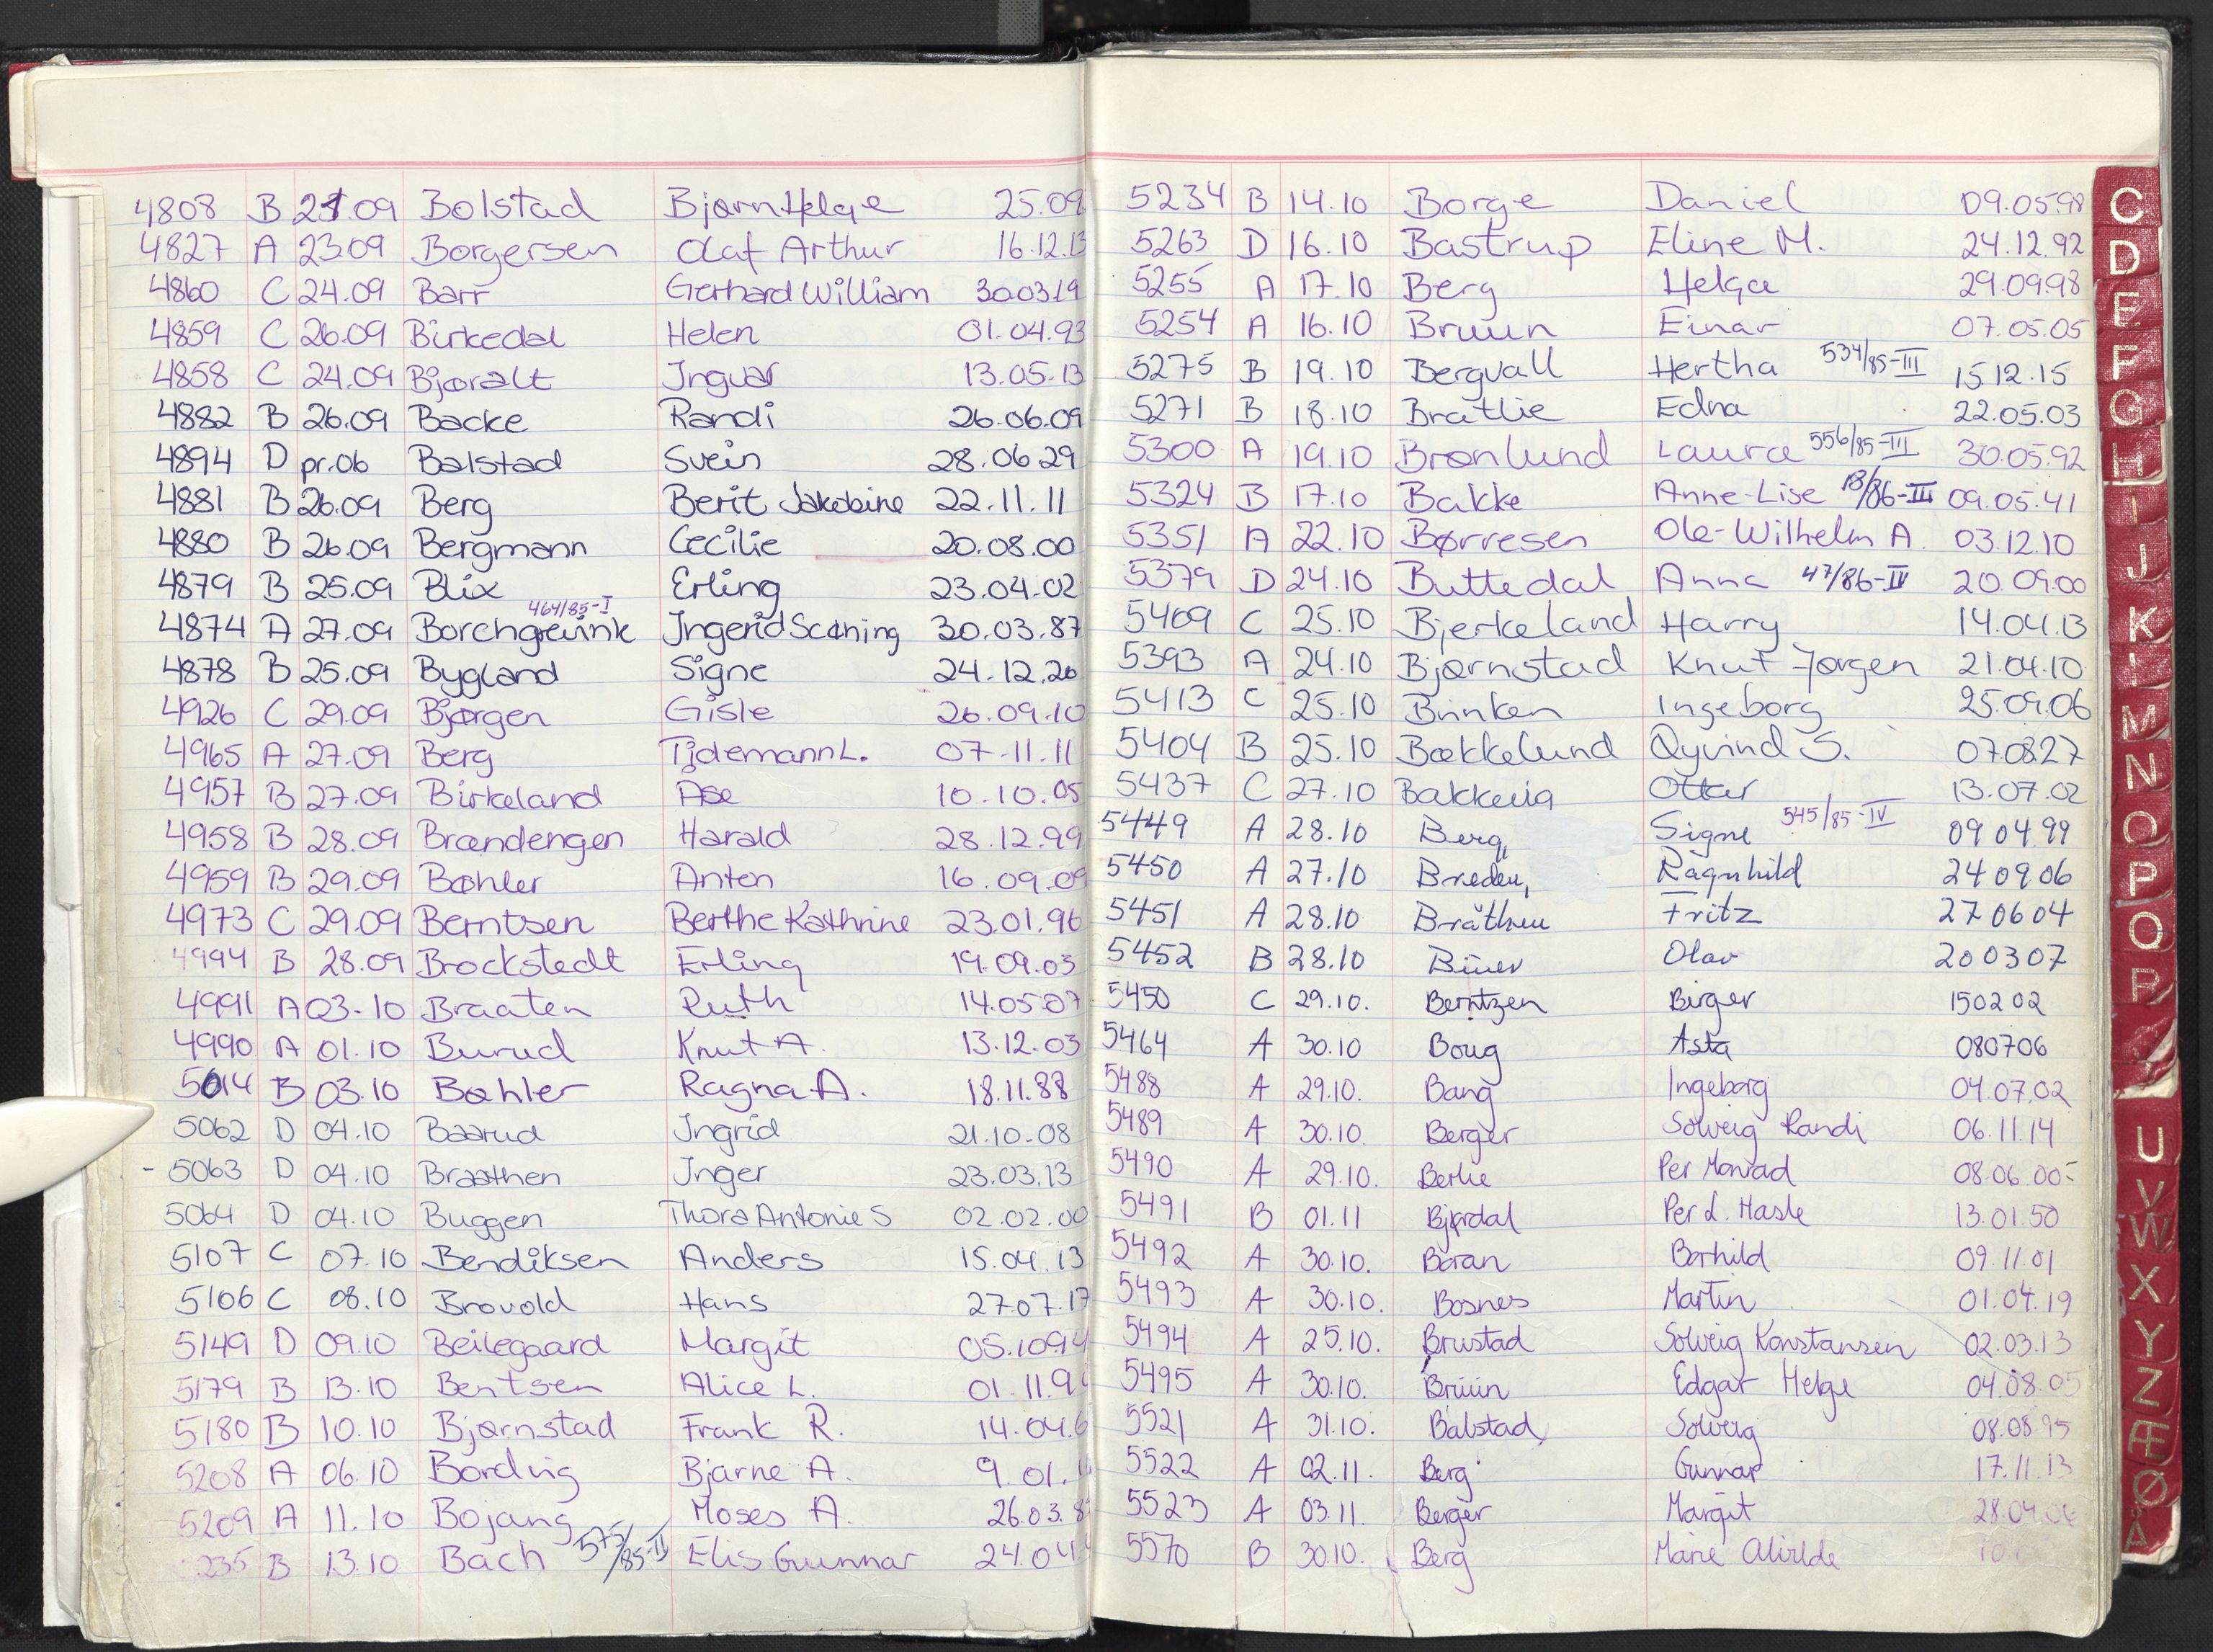 4808 B 21.09 Bolstad Bjørn Helge 25.09
4827 A 23.09 Borgersen Olaf Arthur 16.12.13
4860 C 24.09 Barr Gerhard William 30.03.19
4859 C 26.09 Birkedal Helen 01.04.93
4858 C 24.09 Bjøralt Ingvar 13.05.13
4882 B 26.09 Backe Randi 26.06.09
4894 D pr.06 Balstad Svein 28.06.29
4881 B 26.09 Berg Berit Jakobine 22.11.11
4880 B 26.09 Bergmann Cecilie 20.08.00
4879 B 25.09 Blix Erling 23.04.02
464/85-I
4874 A 27.09 Borchgrevink Ingerid Scaning 30.03.87
4878 B 25.09 Bygland Signe 24.12.20
4926 C 29.09 Bjørgen Gisle 26.09.10
4965 A 27.09 Berg Tidemann L. 07.11.11
4957 B 27.09 Birkeland Åse 10.10.05
4958 B 28.09 Brændengen Harald 28.12.99
4959 B 29.09 Bøhler Anten 16.09.09
4973 C 29.09 Berntsen Berthe Kathrine 23.01.96
4994 B 28.09 Brockstedt Erling 19.09.03
4991 A 03.10 Braaten Ruth 14.05.07
4990 A 01.10 Burud Knut A. 13.12.03
5014 B 03.10 Bøhler Ragna A. 18.11.88
5062 D 04.10 Baarud Ingrid 21.10.08
- 5063 D 04.10 Braathen Inger 23.03.13
5064 D 04.10 Buggen Thora Antonie S 02.02.00
5107 C 07.10 Bendiksen Anders 15.04.13
5106 C 08.10 Brovold Hans 27.07.17
5149 D 09.10 Beilegaard Margit 05.10.94
5179 B 13.10 Bentsen Alice L. 01.11.9
5180 B 10.10 Bjørnstad Frank R. 14.04.6
5208 A 06.10 Bording Bjarne A. 9.01.
5209 A 11.10 Bojang Moses A. 26.03.8
235 B 13.10 Bach 575/85-II Elis Gunnar 24.04
5234 B 14.10 Borge Daniel 09.05.98
5263 D 16.10 Bastrup Eline M. 24.12.92
5255 A 17.10 Berg Helga 29.09.98
5254 A 16.10 Bruun Einar 07.05.05
5275 B 19.10 Bergvall Hertha 534/85-III 15.12.15
5271 B 18.10 Bratlie Edna 22.05.03
5300 A 19.10 Brønlund Laura 556/85-III 30.05.92
5324 B 17.10 Bakke Anne-Lise 18/86-III 09.05.41
5351 A 22.10 Børresen Ole-Wilhelm A. 03.12.10
5379 D 24.10 Buttedal Anna 47/86-IV 20.09.00
5409 C 25.10 Bjerkeland Harry 14.04.13
5393 A 24.10 Bjørnstad Knut Jørgen 21.04.10
5413 C 25.10 Brinken Ingeborg 25.09.06
5404 B 25.10 Bækkelund Øyvind S. 07.08.27
5437 C 27.10 Bakkevig Ottar 13.07.02
5449 A 28.10 Berg, Signe 545/85-IV 09 04 99
5450 A 27.10 Breden, Ragnhild 24 09 06
5451 A 28.10 Bråthen Fritz 27 06 04
5452 B 28.10 Biner Olav 20 03 07
5450 C 29.10. Berntzen Birger 15 02 02
5464 A 30.10 Boug Asta 08 07 06
5488 A 29.10. Bang Ingeborg 04.07.02
5489 A 30.10. Berger Solveig Randi 06.11.14
5490 A 29.10. Berlie Per Monrad 08.06.00
5491 B 01.11 Bjørdal Per L. Hasle 13.01.50
5492 A 30.10. Boran Borhild 09.11.01
5493 A 30.10. Bosnes Martin 01.04.19
5494 A 25.10. Brustad Solveig Konstansen 02.03.13
5495 A 30.10. Brüün Edgar Helge 04.08.05
5521 A 31.10. Balstad, Solveig 08.08.95
5522 A 02.11. Berg Gunnar 17.11.13
5523 A 03.11. Berger Margit 28.04.
5570 B 30.10. Berg Marie
C
D
E
F
G
H
I
J
K
M
N
O
P
U
V
W
X
Y
Z
Æ
Ø
Å